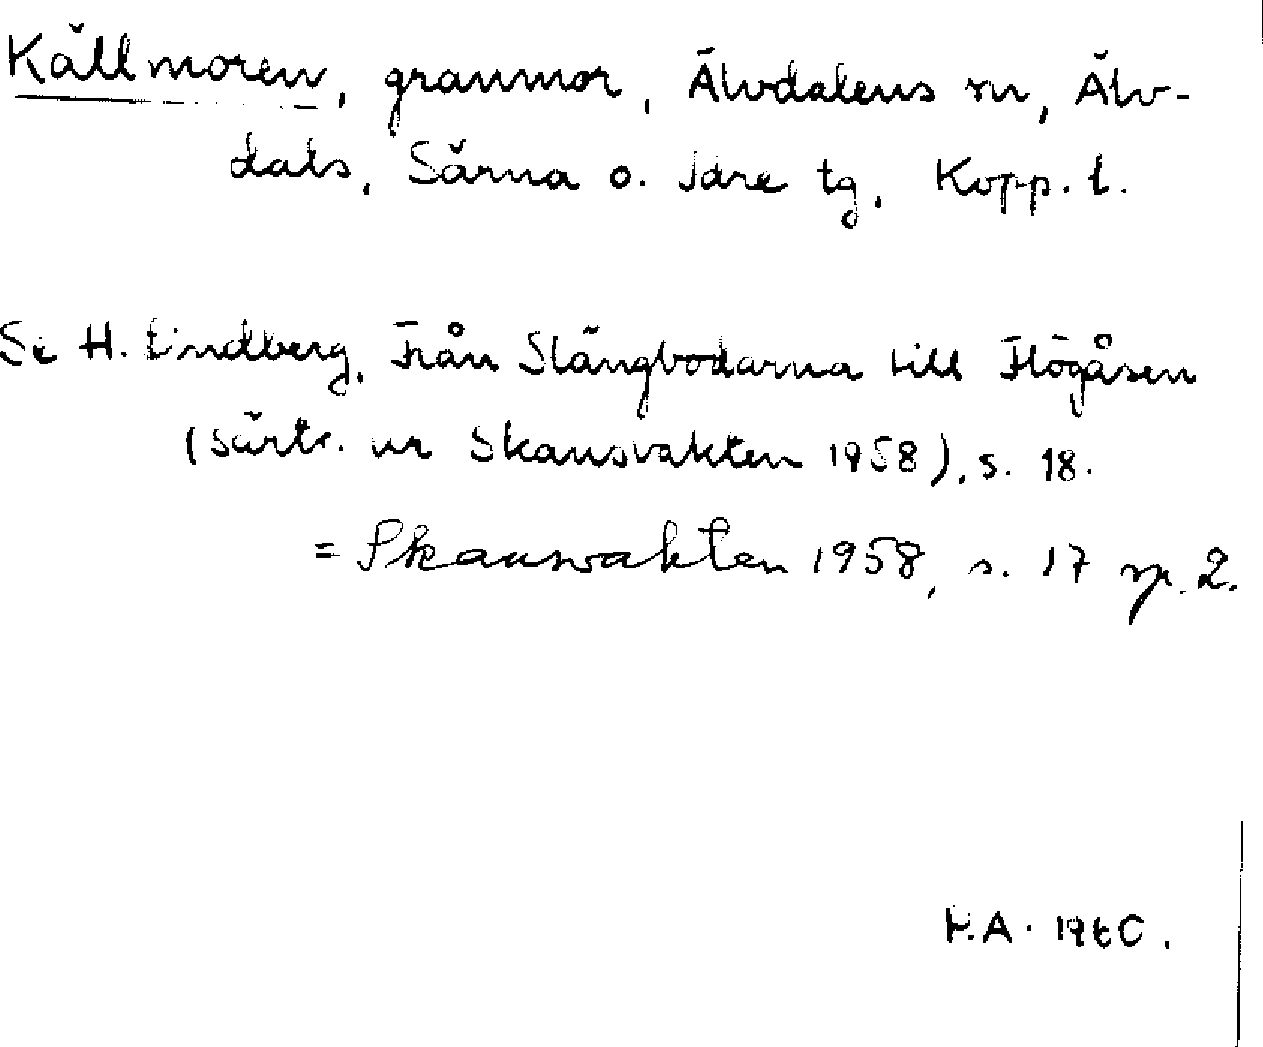 Källmoren, granmor, Älvdalens sn, Älv-
dals, Särna o. Idre tg, Kopp. l.
Se H. Lindberg, Från Slängbodarna till Högåsen
(särtr. ur Skansvakten 1958), s. 18.
= Skansvakten 1958, s. 17 sp. 2.
A. 1960.